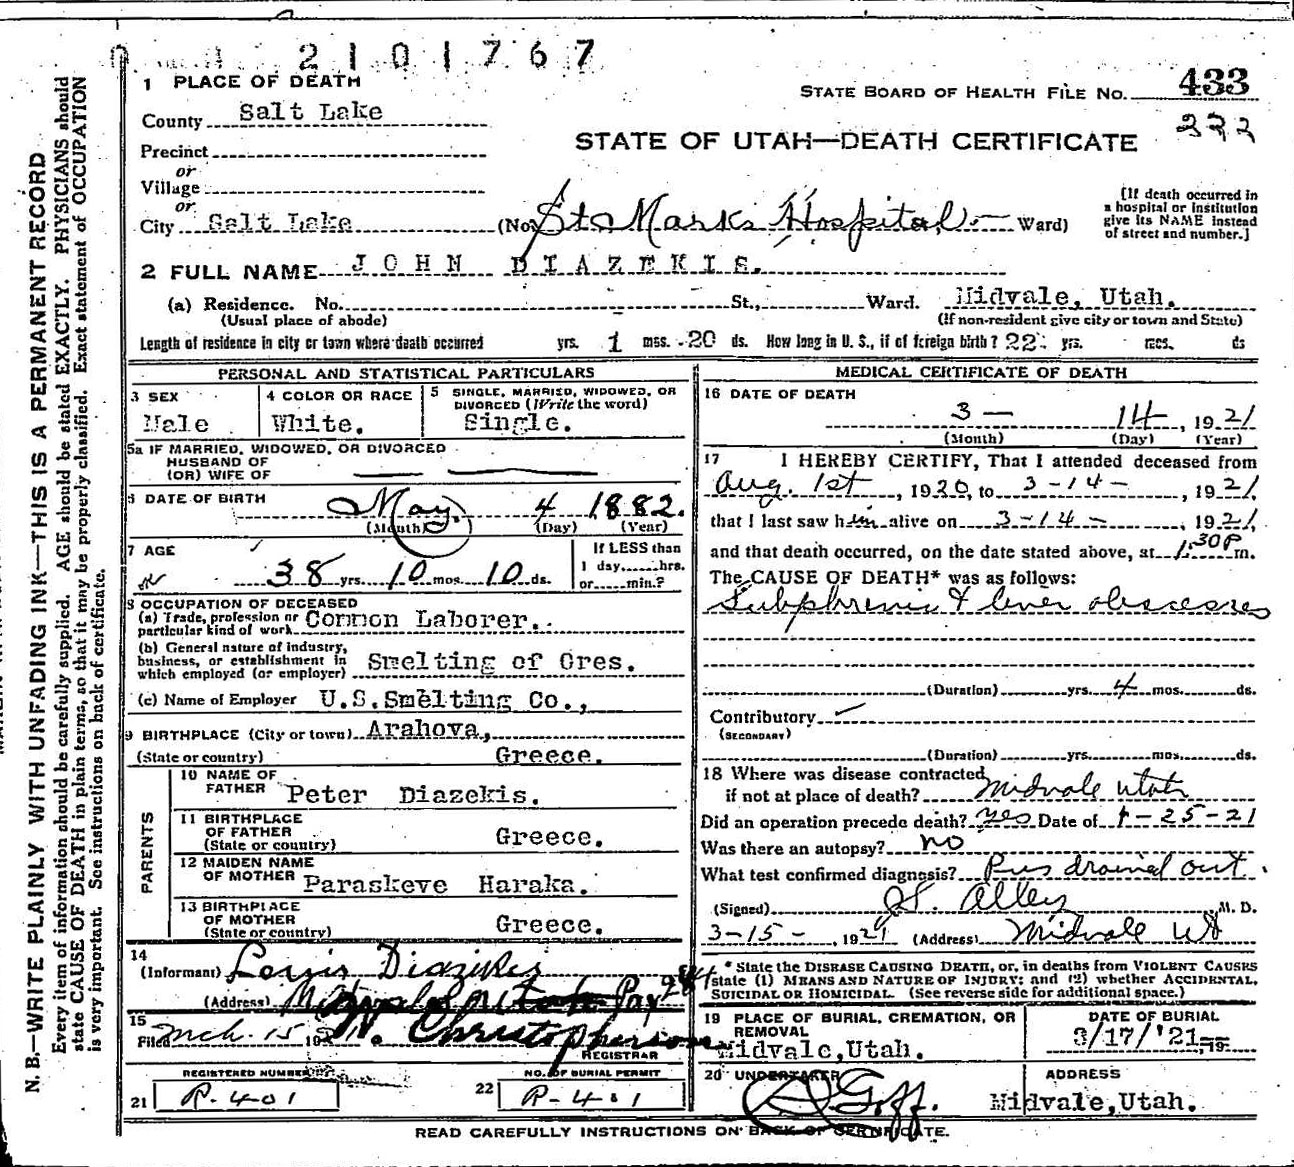 2101767
1 PLACE OF DEATH
STATE BOARD OF HEALTH FILE NO. 433
County Salt Lake
232
STATE OF UTAH—DEATH CERTIFICATE
Precinct
or
Village
or
City Salt Lake (No. St. Marks Hospital Ward)
[If death occurred in
a hospital or institution
give its NAME instead
of street and number.]
2 FULL NAME JOHN DIAZEKIS.
(a) Residence. No. St., Ward. Midvale, Utah.
(Usual place of abode) (If non-resident give city or town and State)
Length of residence in city or town where death occurred yrs. 1 mos. 20 ds. How long in U. S., if of foreign birth? 22 yrs. mos. ds
PERSONAL AND STATISTICAL PARTICULARS
3 SEX
Male
4 COLOR OR RACE
White.
5 SINGLE, MARRIED, WIDOWED, OR
DIVORCED (Write the word)
Single.
5a IF MARRIED, WIDOWED, OR DIVORCED
HUSBAND OF
(OR) WIFE OF
6 DATE OF BIRTH
May 4 1882.
(Month) (Day) (Year)
7 AGE
38 yrs. 10 mos. 10 ds.
If LESS than
1 day,......hrs.
or......min.?
8 OCCUPATION OF DECEASED
(a) Trade, profession or
particular kind of work Common Laborer.
(b) General nature of industry,
business, or establishment in
which employed (or employer) Smelting of Ores.
(c) Name of Employer U.S.Smelting Co.,
9 BIRTHPLACE (City or town) Arahova,
(State or country) Greece.
PARENTS
10 NAME OF
FATHER Peter Diazekis.
11 BIRTHPLACE
OF FATHER
(State or country) Greece.
12 MAIDEN NAME
OF MOTHER Paraskeve Haraka.
13 BIRTHPLACE
OF MOTHER
(State or country) Greece.
14
(Informant) Louis Diazikes
(Address) Midvale Utah
15
Filed Mch. 15 1921. Christopherson
REGISTRAR
REGISTERED NUMBER
21 R-401
NO. OF BURIAL PERMIT
22 R-401
MEDICAL CERTIFICATE OF DEATH
16 DATE OF DEATH
3 — 14 , 1921
(Month) (Day) (Year)
17 I HEREBY CERTIFY, That I attended deceased from
Aug. 1st , 1920, to 3-14- , 1921,
that I last saw him alive on 3-14- , 1921,
and that death occurred, on the date stated above, at 1.30P m.
The CAUSE OF DEATH* was as follows:
Subphrenic & liver abscesses
(Duration) yrs. 4 mos. ds.
Contributory
(SECONDARY)
(Duration) yrs. mos. ds.
18 Where was disease contracted
if not at place of death? Midvale Utah
Did an operation precede death? Yes Date of 1-25-21
Was there an autopsy? no
What test confirmed diagnosis? Pus drained out.
(Signed) Alley M. D.
3-15- , 1921 (Address) Midvale Ut
* State the DISEASE CAUSING DEATH, or, in deaths from VIOLENT CAUSES
state (1) MEANS AND NATURE OF INJURY; and (2) whether ACCIDENTAL,
SUICIDAL OR HOMICIDAL. (See reverse side for additional space.)
19 PLACE OF BURIAL, CREMATION, OR
REMOVAL
Midvale,Utah.
DATE OF BURIAL
3/17/'21 19
20 UNDERTAKER
Goff.
ADDRESS
Midvale,Utah.
READ CAREFULLY INSTRUCTIONS ON BACK OF CERTIFICATE.
N. B.—WRITE PLAINLY WITH UNFADING INK—THIS IS A PERMANENT RECORD
Every item of information should be carefully supplied. AGE should be stated EXACTLY. PHYSICIANS should
state CAUSE OF DEATH in plain terms, so that it may be properly classified. Exact statement of OCCUPATION
is very important. See instructions on back of certificate.